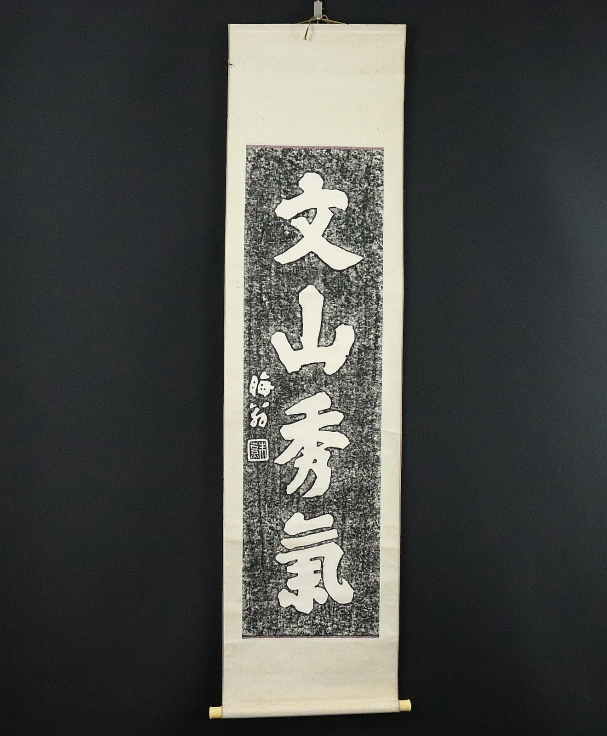 文山秀氣
晦翁